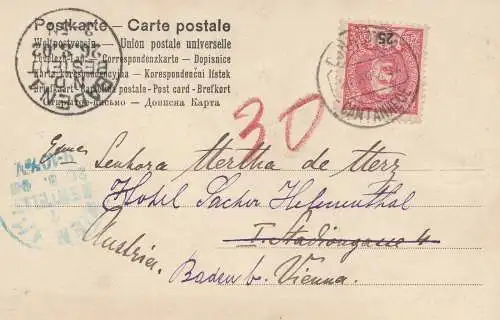 Postkarte – Carte postale
Weltpostverein – Union postale universelle
Correspondenzkarte – Dopisnice
Karta korespondencyjna – Korespondenční lístek
postale – Post card – Brefkort
Открытое письмо – Дописна Карта
25
CANTANHEDE
BADEN
30
Senhora Mertha de Merz
Hotel Sacher Helenenthal
I. Stadiongasse 4
Austria.
Baden b. Vienna.